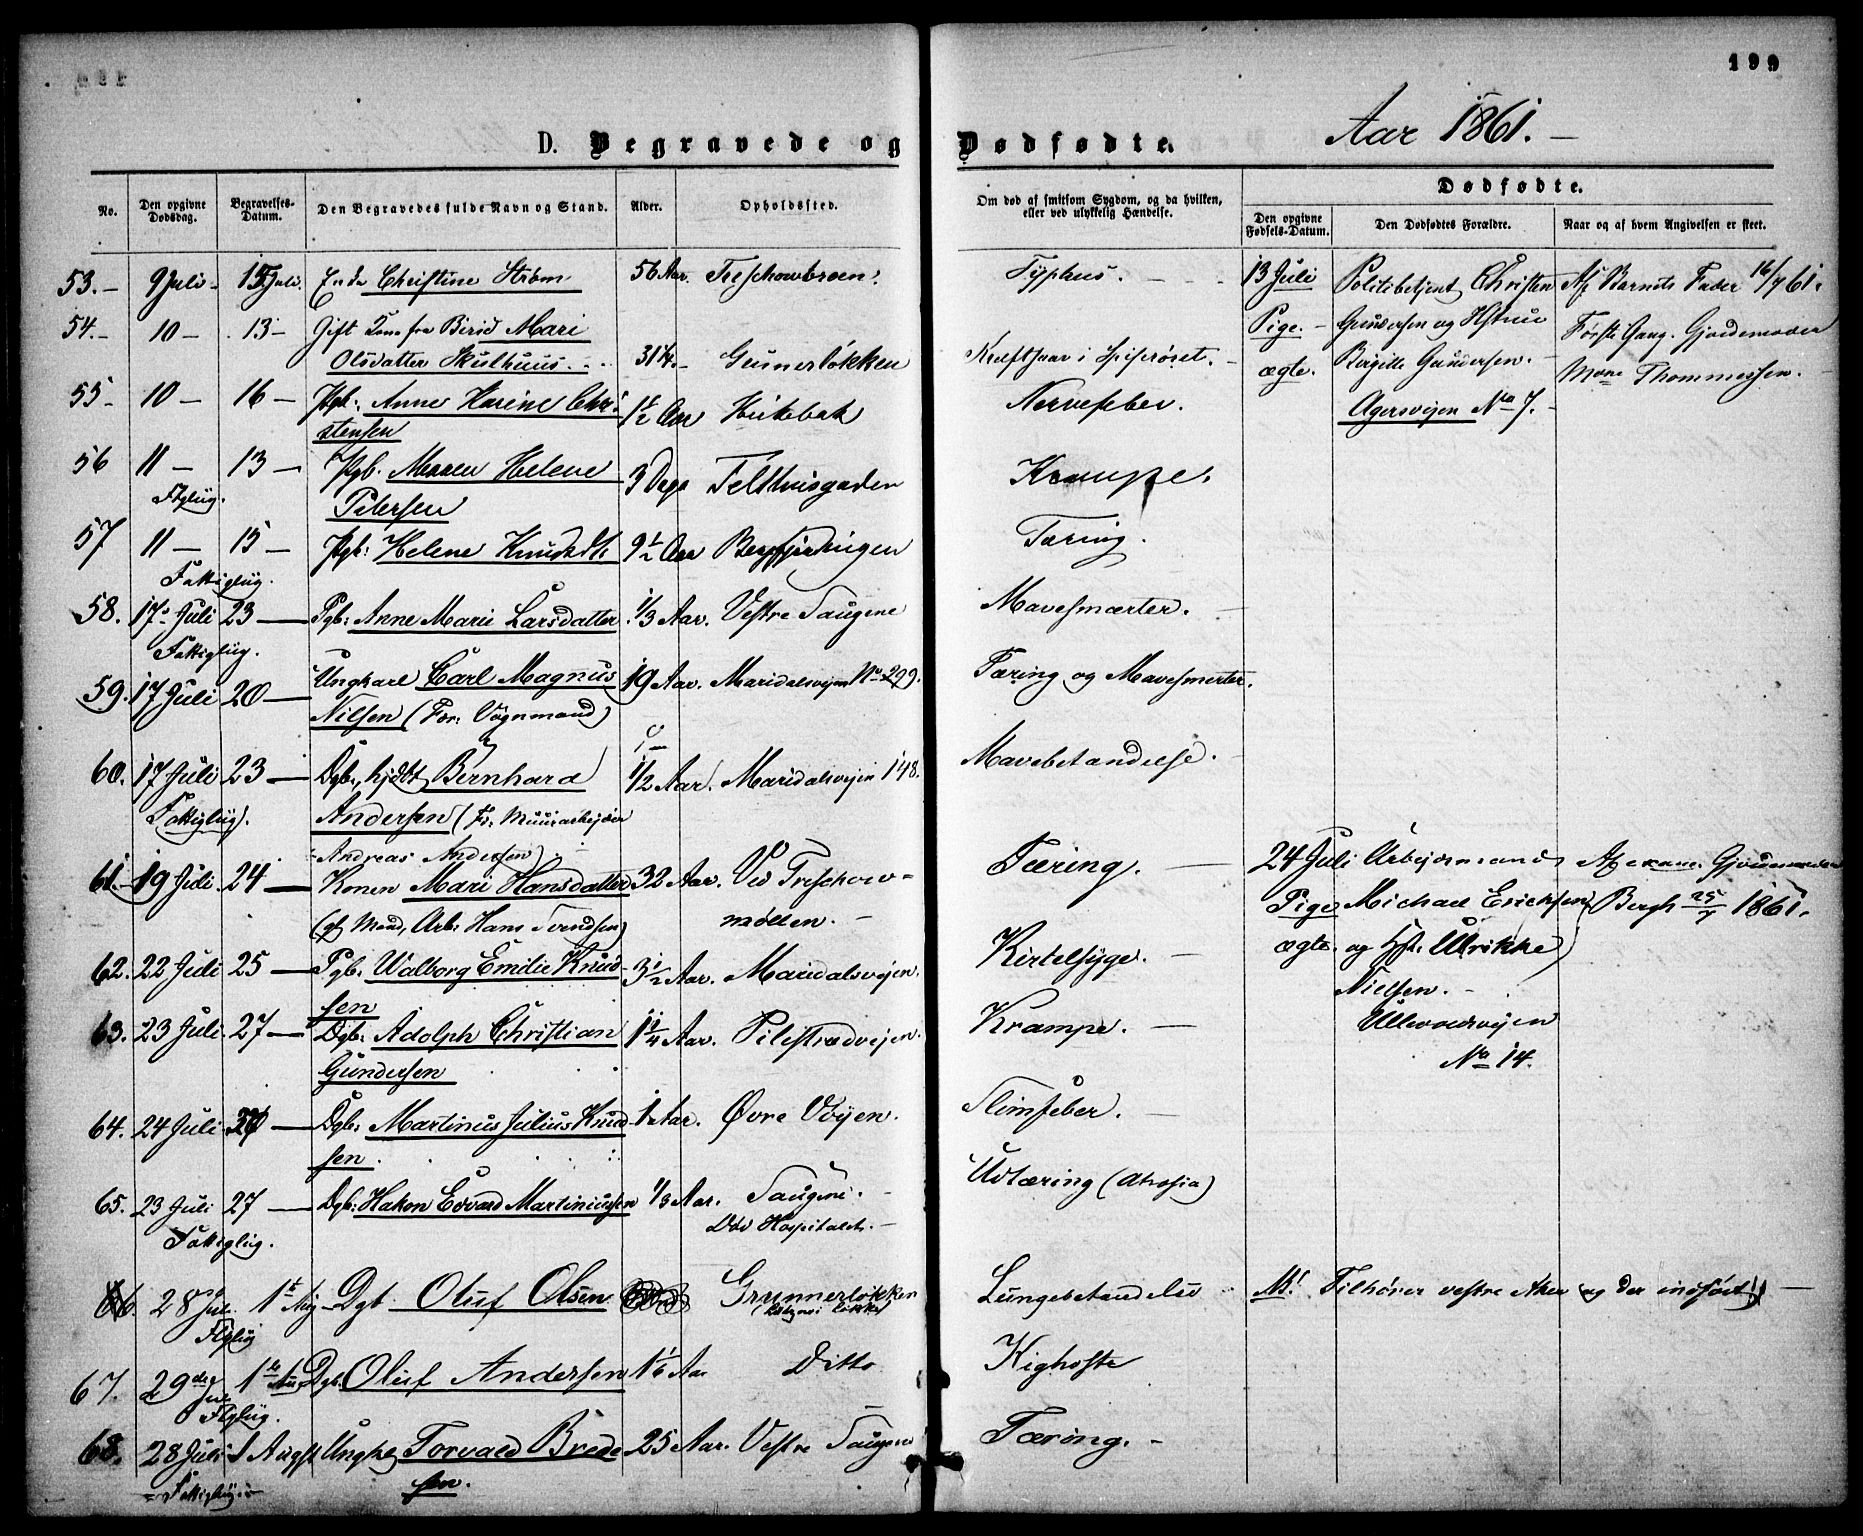 199
Aar 1861. —
D. Begravede og Dødfødte.
No. Den opgivne Dødsdag. Begravelses-Datum. Den Begravedes fulde Navn og Stand. Alder. Opholdssted. Om død af smitsom Sygdom, og da hvilken, eller ved ulykkelig Hændelse.
Dødfødte.
Den opgivne Fødsels-Datum. Den Dødfødtes Forældre. Naar og af hvem Angivelsen er skeet.
53. — 9 Juli — 15 Juli. Enke Christine Strøm 56 Aar. Treschowbroen. Typhus. — 13 Juli Politibetjent Christen Af Barnets Fader 16/7 61.
54. — 10 — 13 — Gift Kone fra Birid Mari
Olsdatter Skulhuus 31 Grunerløkken Kræftsaar i Spiserøret. — Pige. — Gundersen og Hstrue Første Gang. Gjordemoder
55 — 10 — 16 — Pgb: Anne Karine Chri-
stensen 1 1/2 Aar Kukebak Nervefeber. ægte. Birgitte Gundersen. — Mdme Thommessen. —
Agersvejen No 7. —
56 11 — 13 — Pgb. Maren Helene
Ftglig. Petersen 3 Dage Telthusgaden Krampe.
57 11 — 15 — Pgb: Helene Knudsdt. 9 1/2 Aar Bergfjerdingen Tæring.
Fattiglig.
58. 17 Juli 23 — Pgb: Anne Marie Larsdatter 1/3 Aar. Vestre Saugene Mavesmærter. —
Fattiglig.
59. 17 Juli 20 — Ungkarl Carl Magnus 19 Aar. Maridalsvejen No 299. Tæring og Mavesmerter.
Nilsen (For: Vognmand)
60. 17 Juli 23 — Dgb. hjdbt Bernhard 1/2 Aar. Maridalsvejen 148. Mavebetændelse.
Fattiglig. Andersen (Fr. Muurarbejder
Andreas Andersen)
61. — 19 Juli 24 — Konen Mari Hansdatter 32 Aar. Ved Treschow- Tæring. — 24 Juli Arbejdsmand Gjordemoder
(gf Mand, Arb: Hans Svendsen) møllen. — Pige Michael Erichsen Bergh 25/7 1861.
62. 22 Juli 25 — Pgb: Walborg Emilie Knud-
sen 3 1/2 Aar. Maridalsvejen. Kirtelsyge. — ægte. og Hst. Ulrikke
Nielsen. —
63. 23 Juli 27 — Dgb: Adolph Christian 1 1/4 Aar. Pilestrædvejen. Krampe. — Ullevoldsvejen
Gundersen No 14.
64. 24 Juli — Dgb: Martinus Julius Knud 1 Aar. Øvre Vøyen. Slimfeber. —
sen.
65. 23 Juli 27 — Dgb: Hakon Edvard Martiniussen 1/3 Aar. Saugene. — Udtæring (Atrofia)
Fattiglig. Død Hospitalet. —
66. 28 Juli 1st Aug Dgb Oluf Olsen Grünnerløkken Lungebetændelse NB! Tilhører vestre Aker og der indført! —
Ftglig
67. 29de Juli 1ste Au Dgb. Oluf Andersen 1 1/6 Aar Ditto Kighoste
Ftglig.
68. 28 Juli 1 Augst Ungk. Torvald Brede 25 Aar. Vestre Saugene Tæring. —
Fattiglig sen.